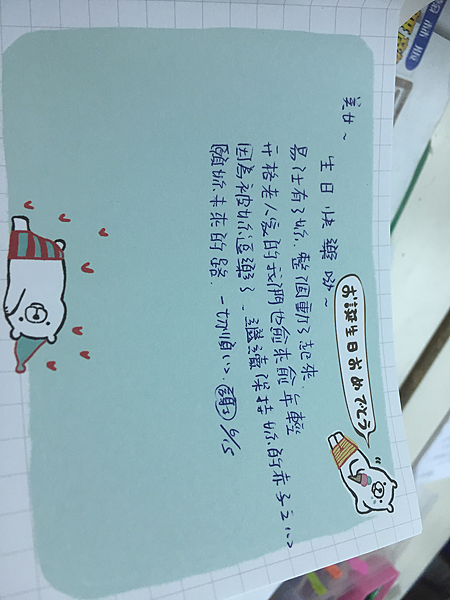 美女~
生日快樂呦~
有了妳,整個動了起來.
升格老人家的我們也愈來愈年輕
因為被妳逗樂了、繼續保持妳的赤子之心
願妳未來的路.一切順心. 6/5
お誕生日おめでとう